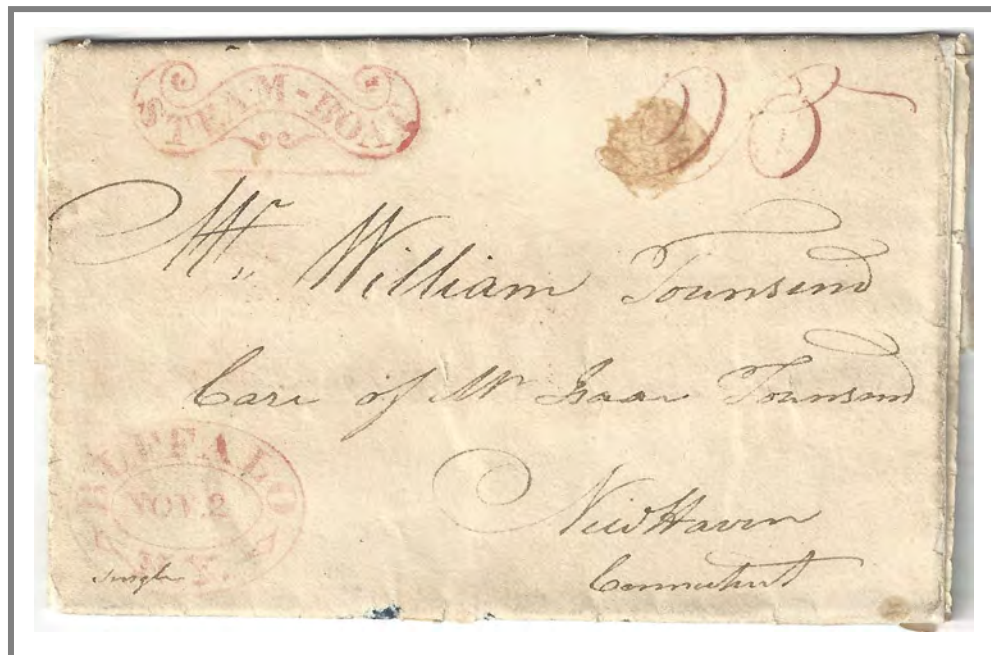 STEAM-BOAT 25
Mr. William Townsend
Care of Mr Isaac Townsend
New Haven
Connecticut
BUFFALO
NOV. 2
N.Y.
Single